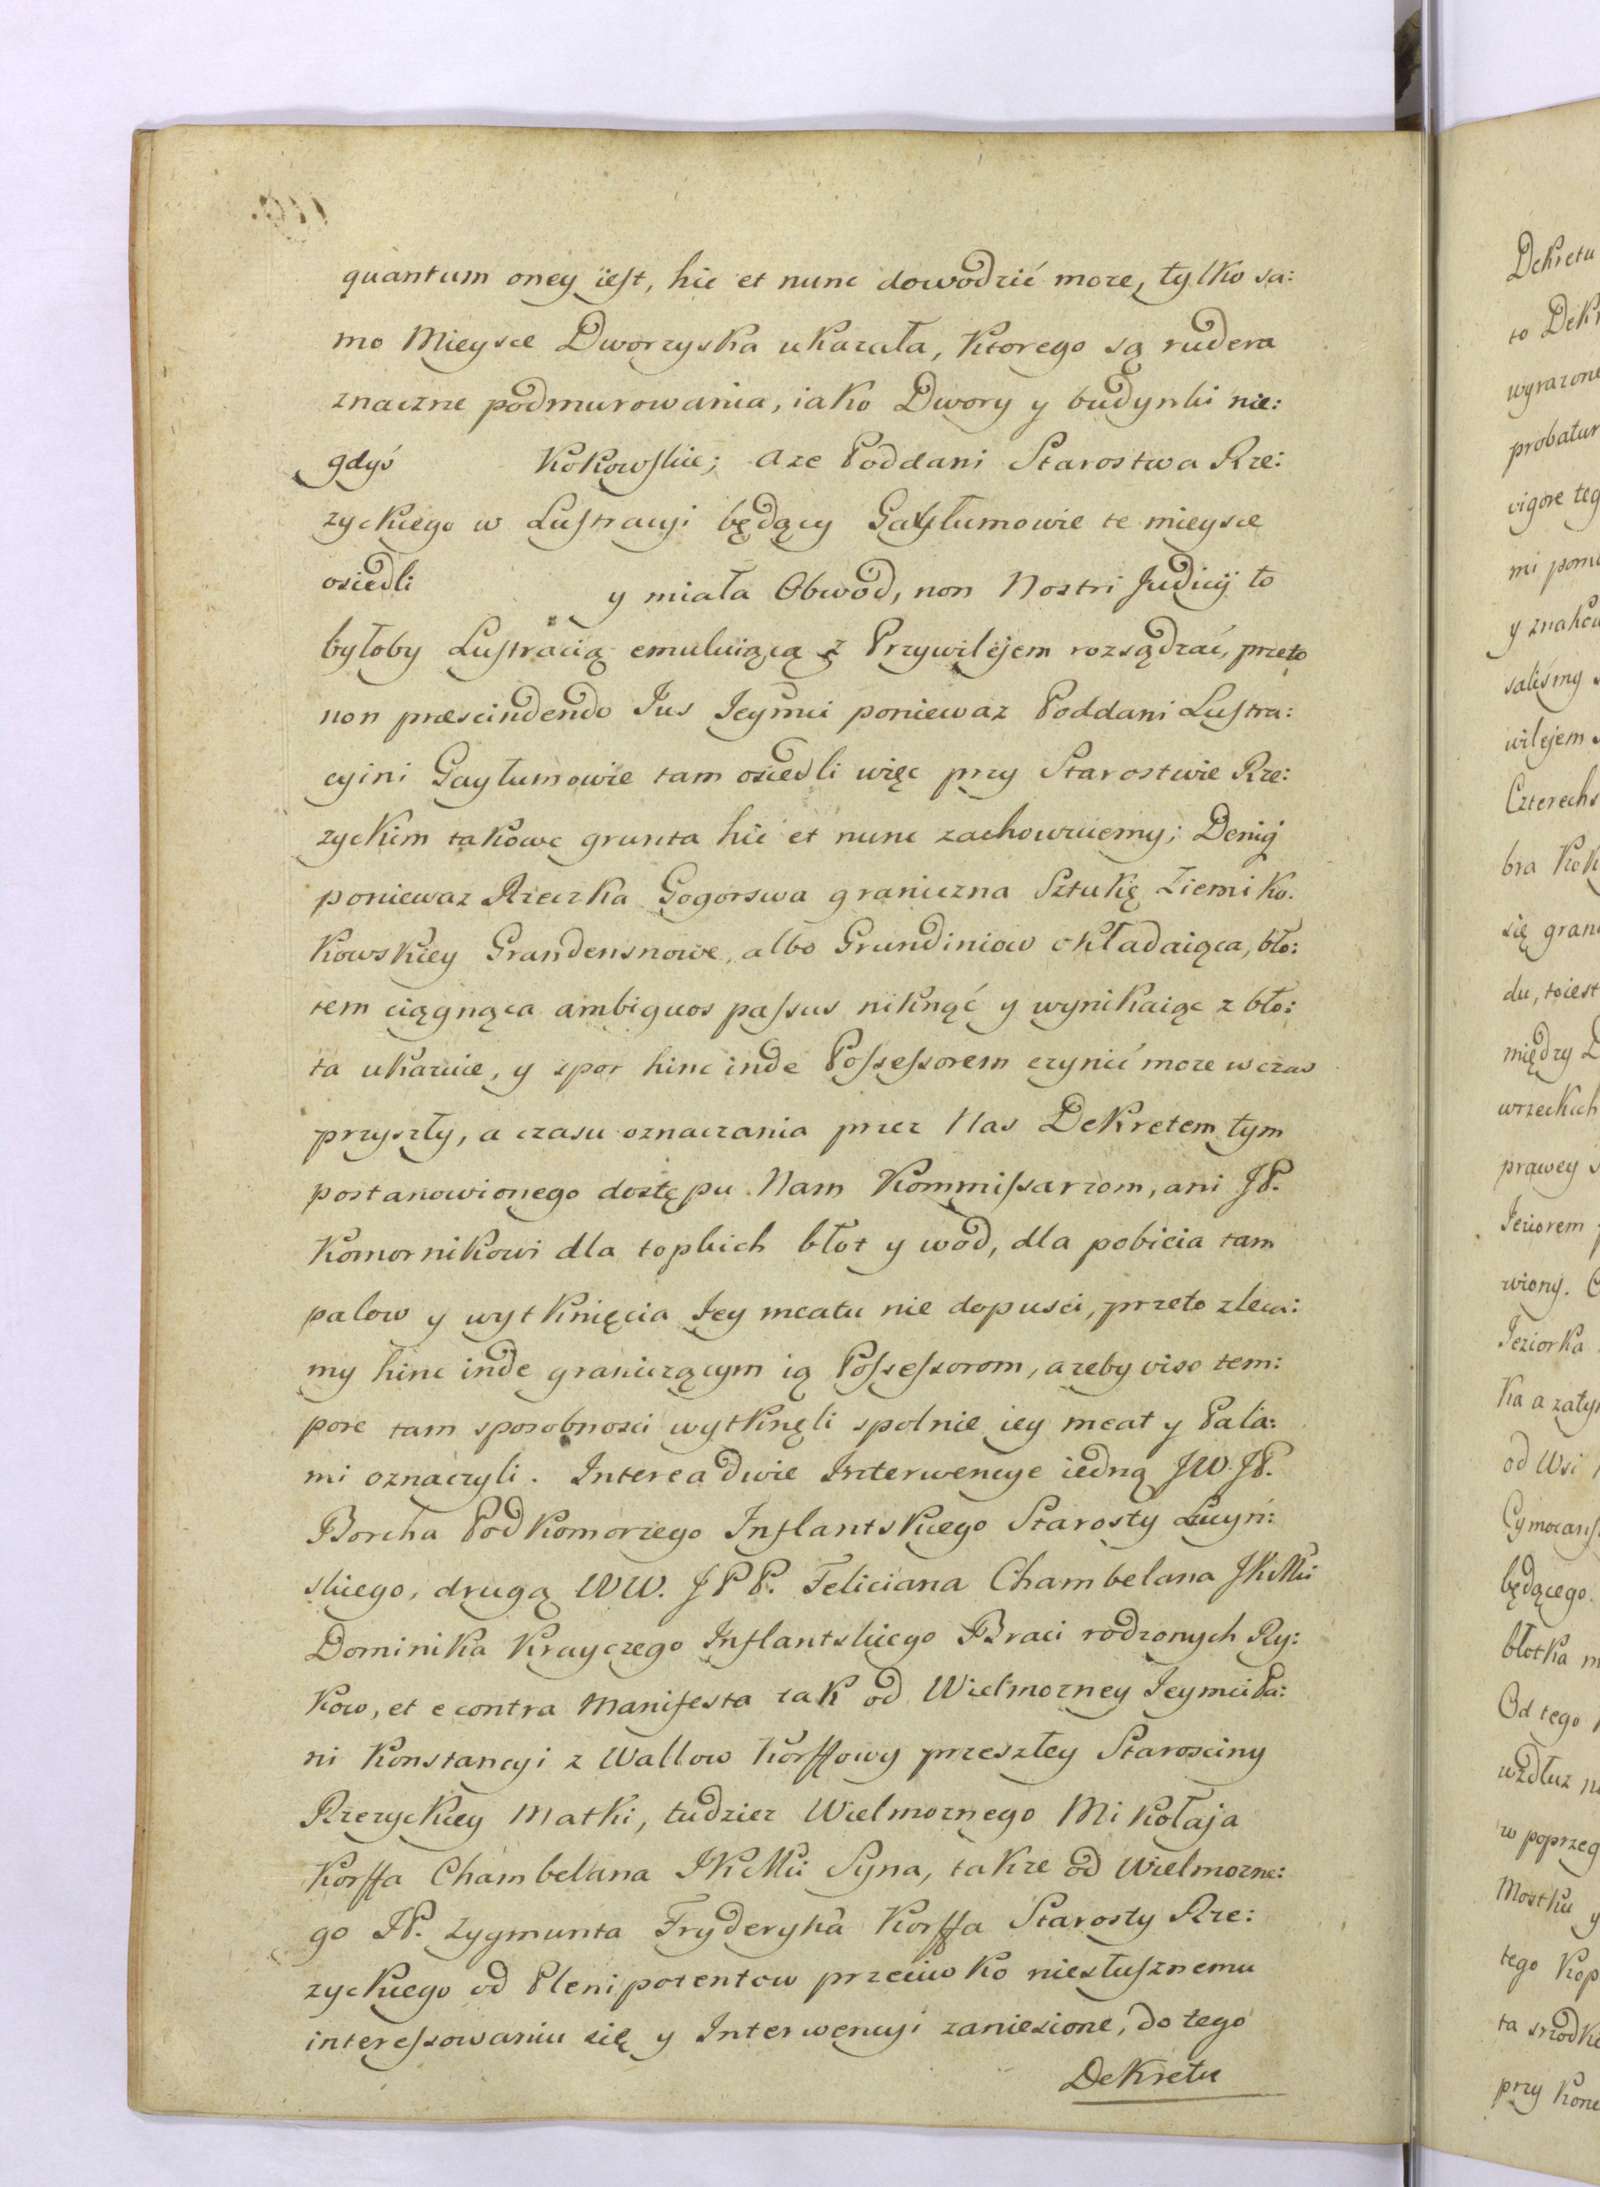 quantum oney iest, hic et nunc dowodzić moze, tylko sa:
mo Mieysce Dworzyska ukazała, Ktorego są rudera
znaczne podmurowania, iako Dwory y budynki nie:
gdyś Kokowskie; a ze Poddani Starostwa Rze:
zyckiego w Lustracyi będący Gayłumowie te mieysce
osiedli y miała Obwod, non Nostri Judicij to
byłoby Lustracią emuluiącą z Przywilejem rozsądzać, przeto
non præscindendo Jus Jeymci poniewaz Poddani Lustra:
cyini Gayłumowie tam osiedli więc przy Starostwie Rze:
zyckim takowe grunta hic et nunc zachowuiemy; Deniq
poniewaz Rzeczka Gogorswa graniczna Sztukę Ziemi Ko:
kowskiey Grandensnowe, albo Grundiniow okładaiąca, bło:
tem ciągnąca ambiguos passus niknąć y wynikaiąc z bło:
ta ukazuie, y spor hinc inde Possessorem czynić moze w czas
przyszły, a czasu oznaczania przez Nas Dekretem tym
postanowionego dostępu Nam Kommissarzom, ani JP.
Komornikowi dla topkich błot y wod, dla pobicia tam
palow y wytknięcia Jey meatu nie dopusci, przeto zleca:
my hinc inde graniczącym ią Possessorom, azeby viso tem:
pore tam sposobnosci wytknęli spolnie iey meat y Pala:
mi oznaczyli. Interea dwie Interwencye iedną JW JP.
Borcha Podkomorzego Inflantskiego Starosty Lucyń:
skiego, drugą WW. JPP. Feliciana Chambelana JKMci
Dominika Krayczego Inflantskiego Braci rodzonych Ry:
kow, et e contra Manifesta tak od Wielmozney Jeymci Pa:
ni Konstancyi z Wallow Korffowy przeszłey Starosciny
Rzezyckiey Matki, tudziez Wielmoznego Mikołaja
Korffa Chambelana JKMci Syna, takze od Wielmozne:
go JP. Zygmunta Fryderyka Korffa Starosty Rze:
zyckiego od Plenipotentow przeciwko niesłusznemu
interessowaniu się y Interwencyi zaniesione, do tego
Dekretu
Dekretu
to Dek
wyrazone
probatur
vigore teg
mi pom
y znako
salismy
wilejem
Czterechs
bra Kok
się gran
du, toiest
między
wrzeckich
prawey
Jeziorem
wiony.
Jeziorka
ka a zały
od Wsi
Cymocans
będącego.
błotka
Od tego
wzdłuz
w poprzeg
Mostku y
tego Kop
ta srzodk
przy Konc